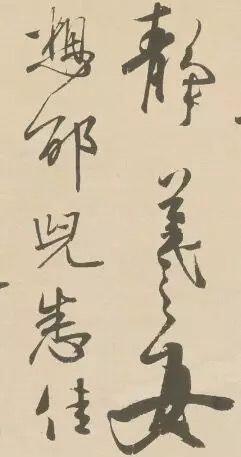 靜羲之女
想邵兒悉佳